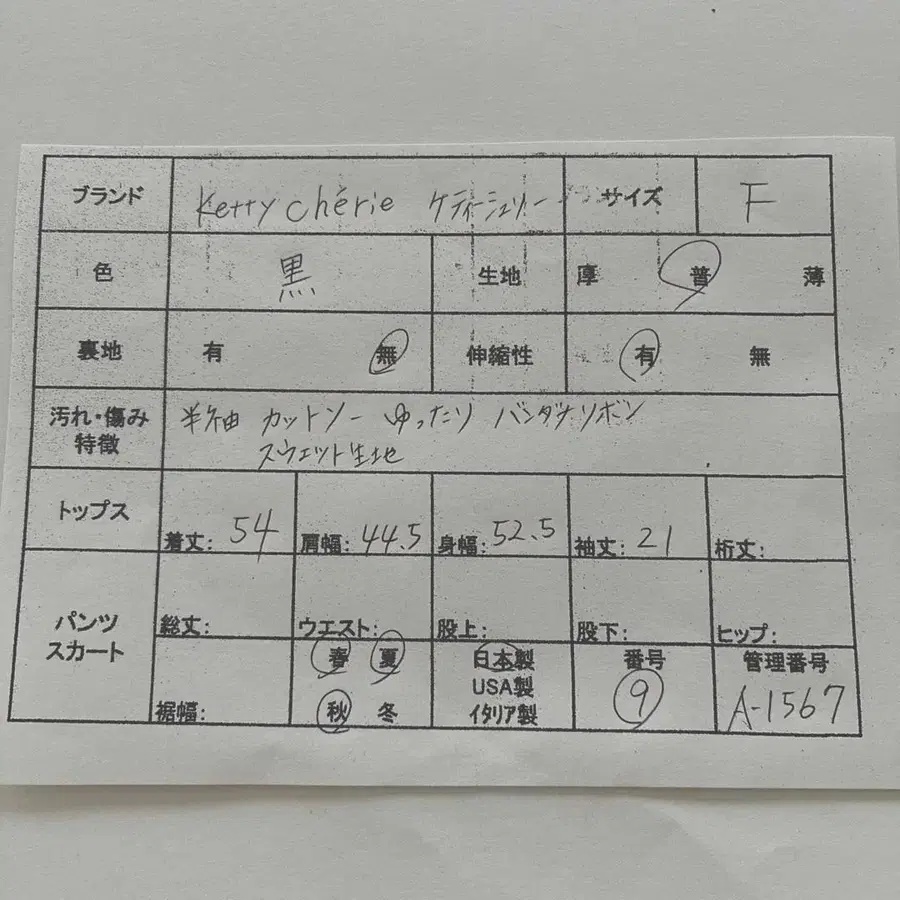 ブランド Ketty chérie ケティーシェリー サイズ F
色 黒 生地 厚 普 薄
裏地 有 無 伸縮性 有 無
汚れ・傷み 半袖 カットソー ゆったり バンダナリボン
特徴 スウェット生地
トップス 着丈: 54 肩幅: 44.5 身幅: 52.5 袖丈: 21 裄丈:
パンツ 総丈: ウエスト: 股上: 股下: ヒップ:
スカート 春 夏 日本製 番号 管理番号
USA製 9 A-1567
裾幅: 秋 冬 イタリア製